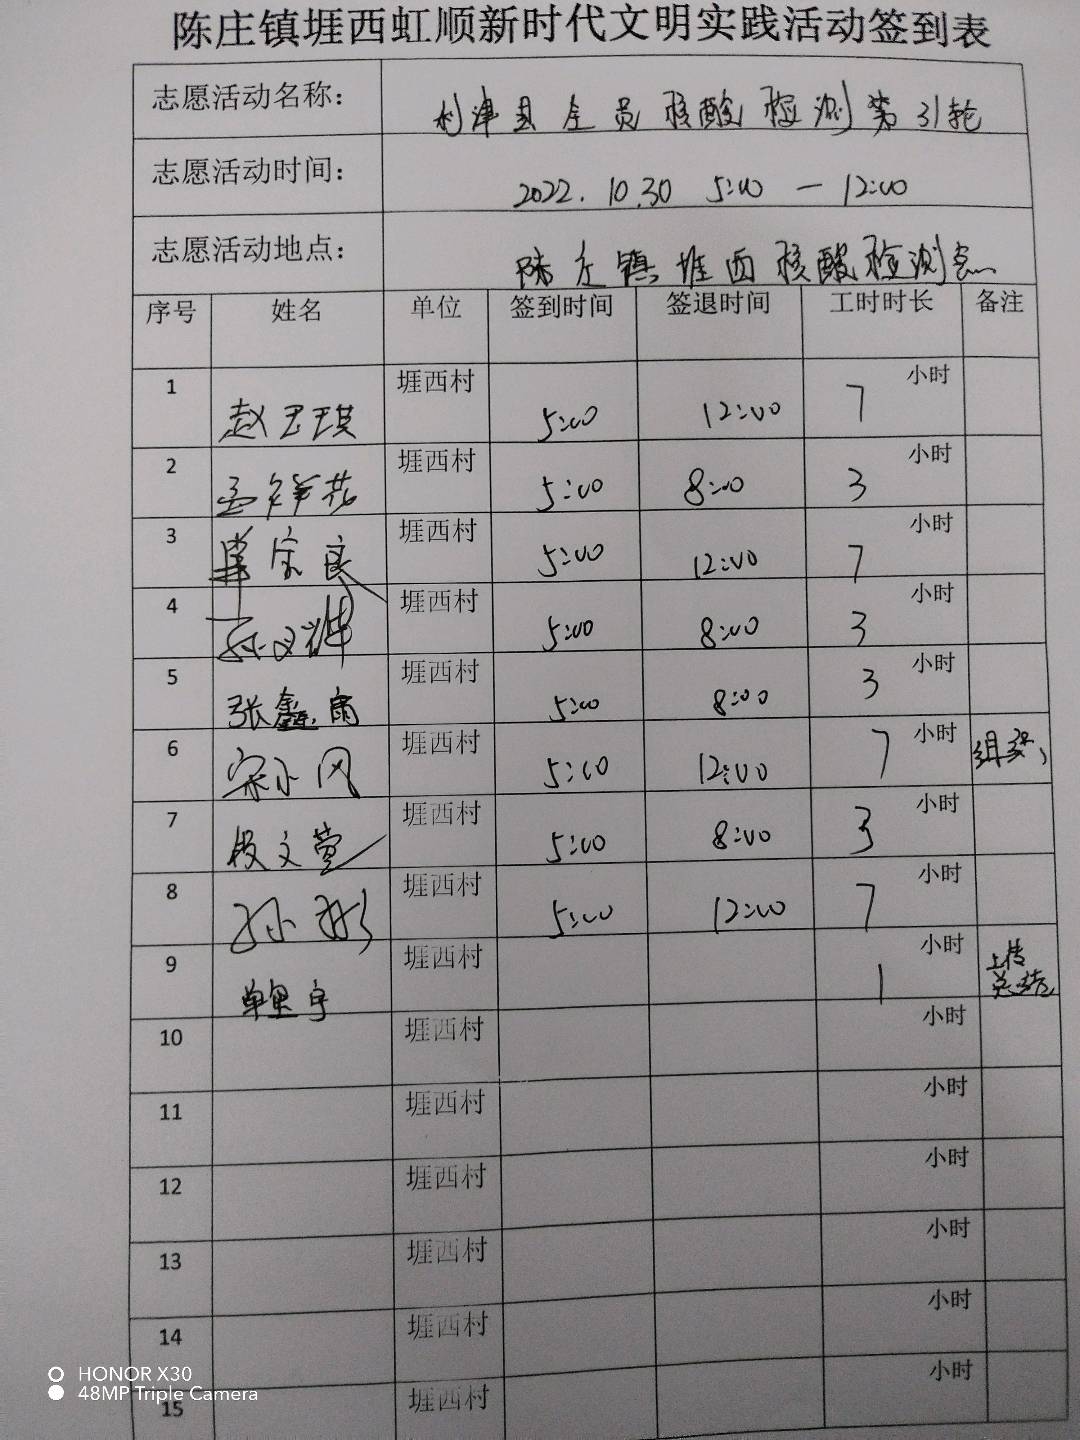 陈庄镇堐西虹顺新时代文明实践活动签到表
志愿活动名称： 利津县全员核酸检测第31轮
志愿活动时间： 2022.10.30 5:00 — 12:00
志愿活动地点： 陈庄镇堐西核酸检测点
序号 姓名 单位 签到时间 签退时间 工时时长 备注
1 赵玉琪 堐西村 5:00 12:00 7 小时
2 孟祥花 堐西村 5:00 8:00 3 小时
3 宗良 堐西村 5:00 12:00 7 小时
4 孙文 堐西村 5:00 8:00 3 小时
5 张鑫雨 堐西村 5:00 8:00 3 小时
6 宋小风 堐西村 5:00 12:00 7 小时 组织
7 段文萱 堐西村 5:00 8:00 3 小时
8 孙彬 堐西村 5:00 12:00 7 小时
9 单宇 堐西村 1 小时 上传总结
10 堐西村 小时
11 堐西村 小时
12 堐西村 小时
13 堐西村 小时
14 堐西村 小时
15 堐西村 小时
HONOR X30
48MP Triple Camera